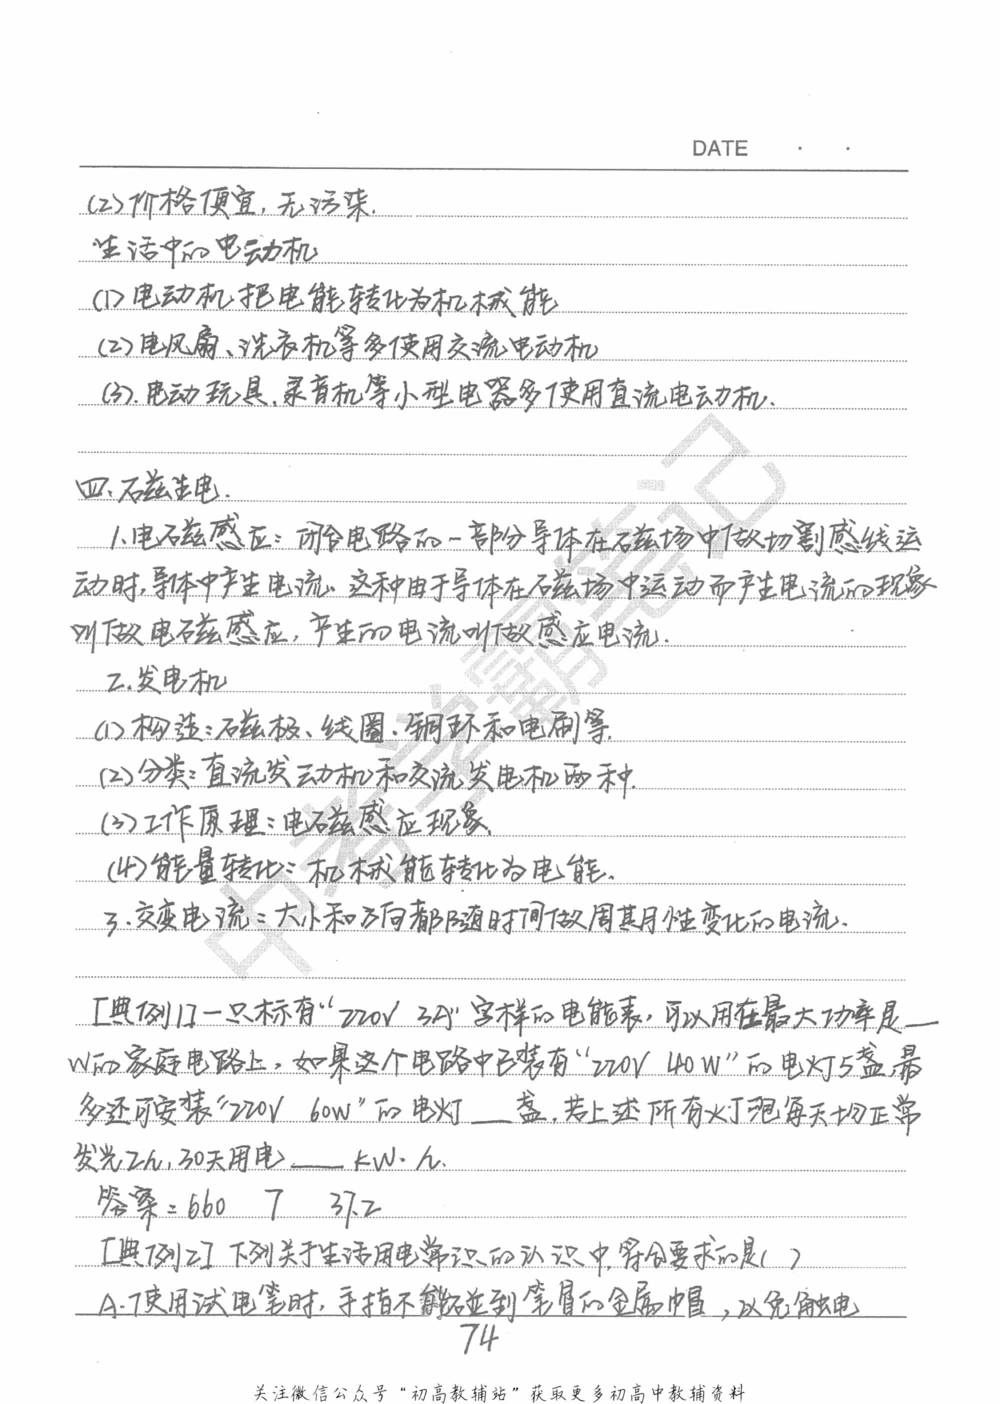 DATE · ·
(2)价格便宜,无污染.
生活中的电动机
(1)电动机把电能转化为机械能
(2)电风扇、洗衣机等多使用交流电动机
(3).电动玩具.录音机等小型电器多使用直流电动机.
四、磁生电.
1.电磁感应:闭合电路的一部分导体在磁场中做切割感线运
动时,导体中产生电流、这种由于导体在磁场中运动而产生电流的现象
叫做电磁感应,产生的电流叫做感应电流.
2.发电机
(1)构造:磁极、线圈.铜环和电刷等.
(2)分类:直流发动机和交流发电机两种.
(3)工作原理:电磁感应现象.
(4)能量转化:机械能转化为电能.
3.交变电流:大小和方向都随时间做周期性变化的电流.
[典例1]一只标有“220V 3A”字样的电能表,可以用在最大功率是__
W的家庭电路上,如果这个电路中已装有“220V 40W”的电灯5盏,最
多还可安装“220V 60W”的电灯__盏,若上述所有灯泡每天均正常
发光2h,30天用电__kW·h.
答案:660 7 37.2
[典例2]下列关于生活用电常识的认识中,符合要求的是( )
A.使用试电笔时,手指不能碰到笔尾的金属帽,以免触电
74
关注微信公众号“初高教辅站”获取更多初高中教辅资料
中考学霸笔记